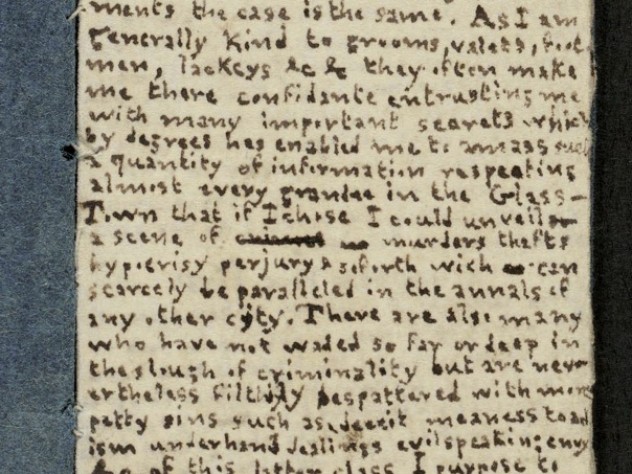 ments the case is the same. As I am
generally kind to grooms, valets, foot
men, lackeys &c & they often make
me there confidante entrusting me
with many important secrets which
by degrees has enabled me to amass such
a quantity of information respecting
almost every grandee in the Glass-
Town that if I chose I could unveil
a scene of murders thefts
hypocrisy perjury & soforth wich can
scarcely be paralleled in the annals of
any other city. There are also many
who have not waded so far or deep in
the slough of criminality but are nev-
ertheless filthily bespattered with more
petty sins such as deceit meaness toad
ism underhand dealings evilspeaking envy
&c of this latter class I purpose to